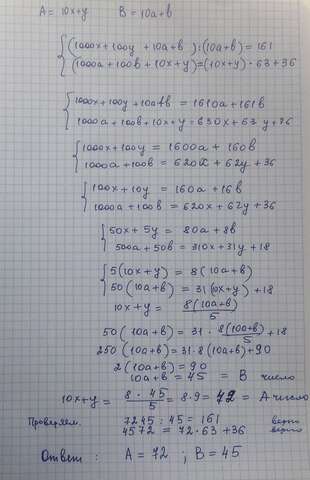 A = 10x+y B = 10a+в
(1000x+100y +10a+в ):(10a+в) = 161
(1000a+100в+10x+y)=(10x+y)·63+36
1000x+100y+10a+в = 1610a+161в
1000a+100в+10x+y = 630x+63y+36
1000x+100y = 1600a + 160в
1000a+100в = 620x + 62y + 36
100x+10y = 160a+16в
1000a+100в = 620x+62y+36
50x+5y = 80a+8в
500a+50в = 310x+31y+18
5(10x+y) = 8(10a+в)
50(10a+в) = 31(10x+y)+18
10x+y = 8(10a+в)/5
50(10a+в) = 31· 8(10a+в)/5 +18
250(10a+в)=31·8(10a+в)+90
2(10a+в)=90
10a+в = 45 = B число
10x+y = 8·45/5 = 8·9 = 72 = A число
Проверяем. 7245:45 = 161 верно
4572 = 72·63+36 верно
Ответ : A = 72 ; B = 45